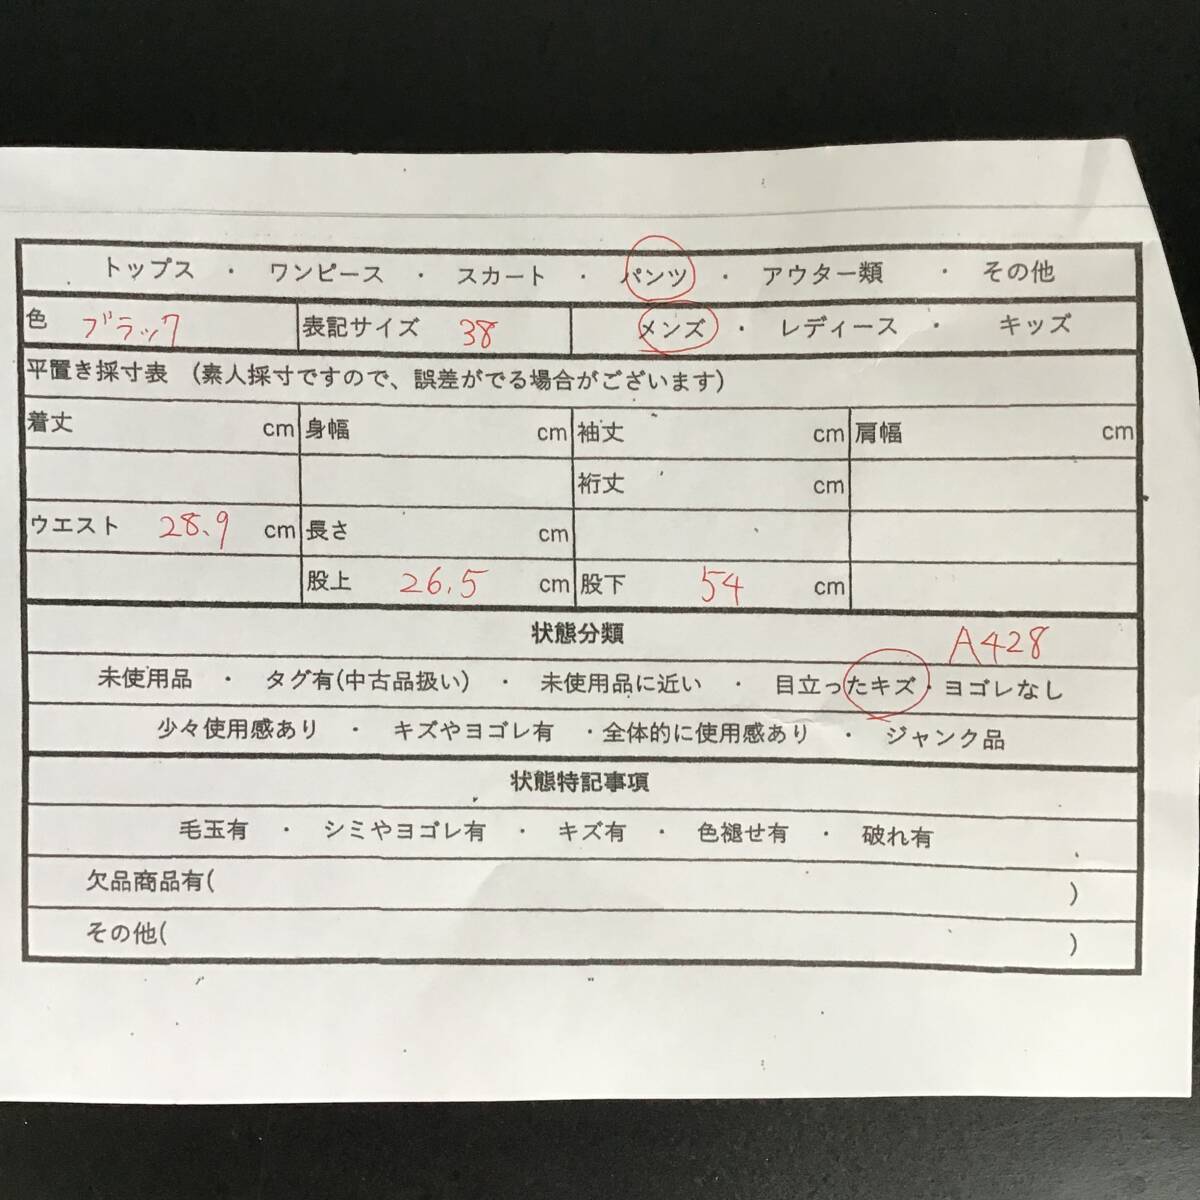 トップス ・ ワンピース ・ スカート ・ パンツ ・ アウター類 ・ その他
色 ブラック 表記サイズ 38 メンズ ・ レディース ・ キッズ
平置き採寸表 (素人採寸ですので、誤差がでる場合がございます)
着丈 cm 身幅 cm 袖丈 cm 肩幅 cm
裄丈 cm
ウエスト 28.9 cm 長さ cm
股上 26.5 cm 股下 54 cm
状態分類 A428
未使用品 ・ タグ有(中古品扱い) ・ 未使用品に近い ・ 目立ったキズ・ヨゴレなし
少々使用感あり ・ キズやヨゴレ有 ・全体的に使用感あり ・ ジャンク品
状態特記事項
毛玉有 ・ シミやヨゴレ有 ・ キズ有 ・ 色褪せ有 ・ 破れ有
欠品商品有( )
その他( )